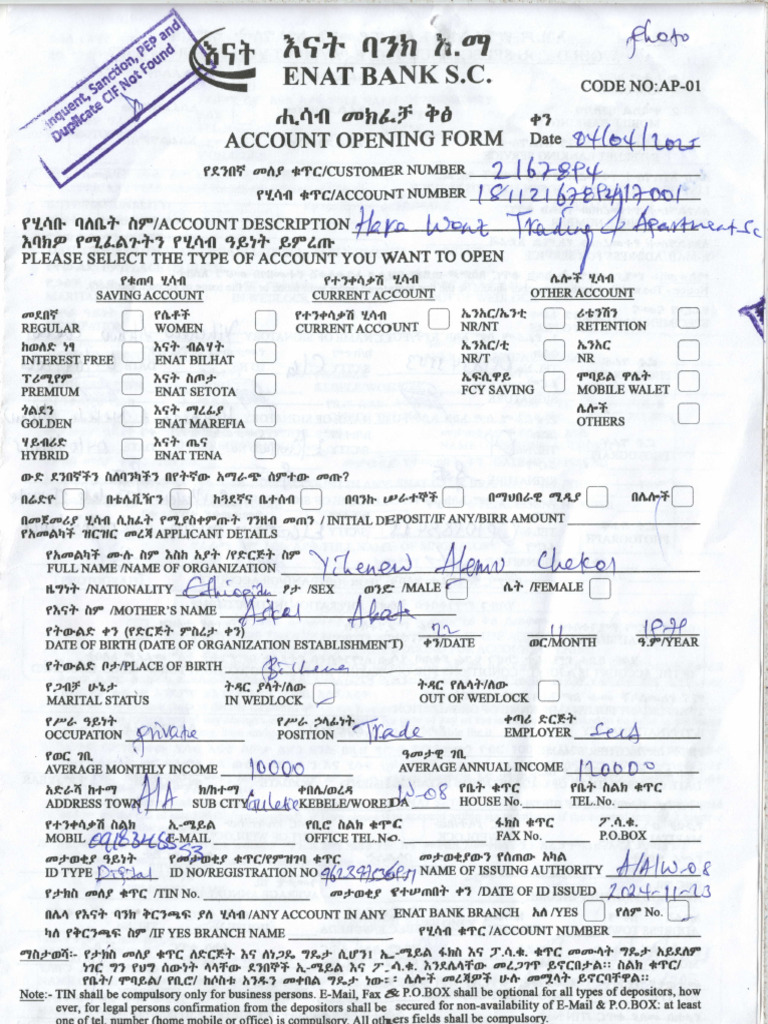 inquent, Sanction, PEP and
Duplicate CIF Not Found
photo
እናት እናት ባንክ አ.ማ
ENAT BANK S.C.
CODE NO:AP-01
ሒሳብ መክፈቻ ቅፅ
ACCOUNT OPENING FORM
ቀን
Date 04/04/2025
የደንበኛ መለያ ቁጥር/CUSTOMER NUMBER
የሂሳብ ቁጥር/ACCOUNT NUMBER
የሂሳቡ ባለቤት ስም/ACCOUNT DESCRIPTION Trading & Apartment Sc
እባክዎ የሚፈልጉትን የሂሳብ ዓይነት ይምረጡ
PLEASE SELECT THE TYPE OF ACCOUNT YOU WANT TO OPEN
የቁጠባ ሂሳብ የተንቀሳቃሽ ሂሳብ ሌሎች ሂሳብ
SAVING ACCOUNT CURRENT ACCOUNT OTHER ACCOUNT
መደበኛ የሴቶች የተንቀሳቃሽ ሂሳብ ኤንአር/ኤንቲ ሪቴንሽን
REGULAR WOMEN CURRENT ACCOUNT NR/NT RETENTION
ከወለድ ነፃ እናት ብልሃት ኤንአር/ቲ ኤንአር
INTEREST FREE ENAT BILHAT NR/T NR
ፕሪሚየም እናት ስጦታ ኤፍሲዋይ ሞባይል ዋሌት
PREMIUM ENAT SETOTA FCY SAVING MOBILE WALET
ጎልደን እናት ማረፊያ ሌሎች
GOLDEN ENAT MAREFIA OTHERS
ሃይብሪድ እናት ጤና
HYBRID ENAT TENA
ውድ ደንበኛችን ስለባንካችን በየትኛው አማራጭ ሰምተው መጡ?
በራድዮ በቴሌቪዥን ከጓደኛና ቤተሰብ በባንኩ ሠራተኞች በማህበራዊ ሚዲያ በሌሎች
በመጀመሪያ ሂሳብ ሲከፈት የሚያስቀምጡት ገንዘብ መጠን / INITIAL DEPOSIT/IF ANY/BIRR AMOUNT
የአመልካች ዝርዝር መረጃ APPLICANT DETAILS
የአመልካች ሙሉ ስም እስከ አያት /የድርጅት ስም
FULL NAME /NAME OF ORGANIZATION Yihenew Alemu Chekol
ዜግነት /NATIONALITY Ethiopian ፆታ /SEX ወንድ /MALE ሴት /FEMALE
የእናት ስም /MOTHER'S NAME
የትውልድ ቀን (የድርጅት ምስረታ ቀን)
DATE OF BIRTH (DATE OF ORGANIZATION ESTABLISHMENT) ቀን/DATE 22 ወር/MONTH 11 ዓ.ም/YEAR
የትውልድ ቦታ/PLACE OF BIRTH
የጋብቻ ሁኔታ ትዳር ያላት/ለው ትዳር የሌላት/ለው
MARITAL STATUS IN WEDLOCK OUT OF WEDLOCK
የሥራ ዓይነት የሥራ ኃላፊነት ቀጣሪ ድርጅት
OCCUPATION private POSITION Trade EMPLOYER self
የወር ገቢ ዓመታዊ ገቢ
AVERAGE MONTHLY INCOME 10000 AVERAGE ANNUAL INCOME 120000
አድራሻ ከተማ ክ/ከተማ ቀበሌ/ወረዳ የቤት ቁጥር የቤት ስልክ ቁጥር
ADDRESS TOWN A/A SUB CITY KEBELE/WOREDA W-08 HOUSE No. TEL No.
የተንቀሳቃሽ ስልክ ኢ-ሜይል የቢሮ ስልክ ቁጥር ፋክስ ቁጥር ፖ.ሳ.ቁ.
MOBIL E-MAIL OFFICE TEL.No. FAX No. P.O.BOX
መታወቂያ ዓይነት የመታወቂያ ቁጥር/የምዝገባ ቁጥር መታወቂያውን የሰጠው አካል
ID TYPE Digital ID NO/REGISTRATION NO NAME OF ISSUING AUTHORITY A/A/W-08
የታክስ መለያ ቁጥር /TIN No. መታወቂያ የተሠጠበት ቀን /DATE OF ID ISSUED 2024-11-23
በሌላ የእናት ባንክ ቅርንጫፍ ያለ ሂሳብ/ANY ACCOUNT IN ANY ENAT BANK BRANCH አለ /YES የለም No.
ካለ የቅርንጫፍ ስም /IF YES BRANCH NAME የሂሳብ ቁጥር /ACCOUNT NUMBER
ማስታወሻ፡- የታክስ መለያ ቁጥር ለድርጅት እና ለነጋዴ ግዴታ ሲሆን፣ ኢ-ሜይል ፋክስ እና ፖ.ሳ.ቁ. ቁጥር መሙላት ግዴታ አይደለም
ነገር ግን የህግ ሰውነት ላላቸው ደንበኞች ኢ-ሜይል እና ፖ.ሳ.ቁ. እንደሌላቸው መረጋገጥ ይኖርበታል። ስልክ ቁጥር/
የቤት/ ሞባይል/ የቢሮ/ ከሶስቱ አንዱን መቀበል ግዴታ ነው፡፡ ሌሎች መረጃዎች ሁሉ መሟላት ይኖርባቸዋል።
Note:- TIN shall be compulsory only for business persons. E-Mail, Fax & P.O.BOX shall be optional for all types of depositors, how
ever, for legal persons confirmation from the depositors shall be secured for non-availability of E-Mail & P.O.BOX: at least
one of tel. number (home mobile or office) is compulsory. All others fields shall be compulsory.